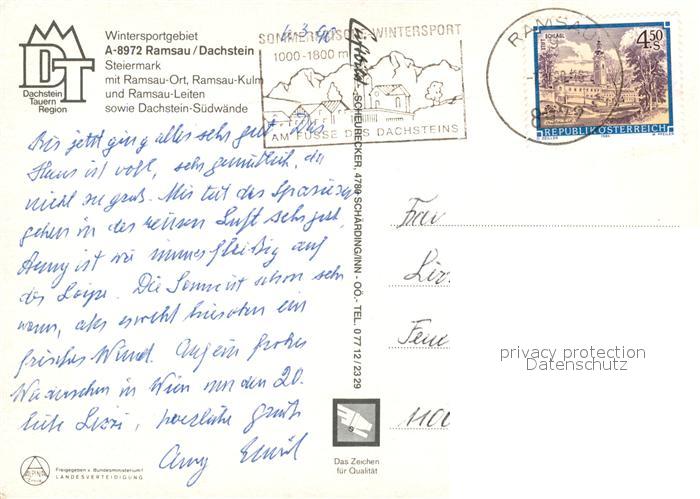 Wintersportgebiet
A-8972 Ramsau/Dachstein
Steiermark
mit Ramsau-Ort, Ramsau-Kulm
und Ramsau-Leiten
sowie Dachstein-Südwände
DT
Dachstein
Tauern
Region
4.3.90
SOMMERFRISCHE WINTERSPORT
1000-1800 m
AM FUSSE DES DACHSTEINS
RAMSAU
8972
STIFT SCHLÄGL
4.50
S
REPUBLIK ÖSTERREICH
Luftbild - SCHEURECKER, 4780 SCHÄRDING/INN - OÖ. - TEL. 0 77 12 / 23 29
Bis jetzt ging alles sehr gut. Das
Haus ist voll, sehr gemütlich, da
nicht zu groß. Mir tut das Spazieren
gehen in der reinen Luft sehr gut,
Anny ist wie immer fleißig auf
der Loipe. Die Sonne ist schon sehr
warm, aber es weht bisweilen ein
frisches Wind. Auf ein frohes
Wiedersehen in Wien um den 20.
liebe Liesi, herzliche Grüße
Anny
Frau
Fem
1100
privacy protection
Datenschutz
ALPINA
Freigegeben v. Bundesministerium f.
LANDESVERTEIDIGUNG
Das Zeichen
für Qualität